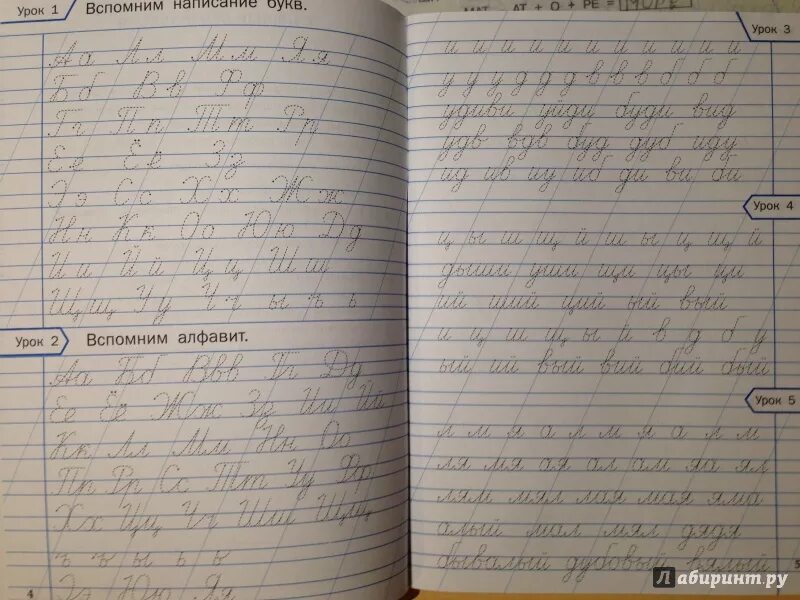 Урок 1
Вспомним написание букв.
Аа Лл Мм Яя
Бб Вв Фф
Гг Пп Тт Рр
Ее Ёё Зз
Ээ Сс Хх Жж
Нн Кк Оо Юю Дд
Ии Йй Цц Шш
Щщ Уу Чч ы ъ ь
Урок 2
Вспомним алфавит.
Аа Бб Вв Гг Дд
Ее Ёё Жж Зз Ии Йй
Кк Лл Мм Нн Оо
Пп Рр Сс Тт Уу Фф
Хх Цц Чч Шш Щщ
ъ ъ ы ь ь
Ээ Юю Яя
4
АТ + О + РЕ = МОРЕ
Урок 3
и и и и и и и и и и и
у у у д д д в в в б б б
удиви уйди буди вид
удв вдв буд дуб иду
ид ив иу иб ди ви би
Урок 4
ц ы ш щ й ш ы ц щ й
дыши уши щи цы ци
ий ший щий ый вый
и ц ш щ ы й в д б у
ый ий вый вий бий бый
Урок 5
л м я а л м я а л м
ля мя ая ал ам яа ял
лям мял лая мая яма
алый мал мял дядя
бывалый дубовый вялый
5
Лабиринт.ру